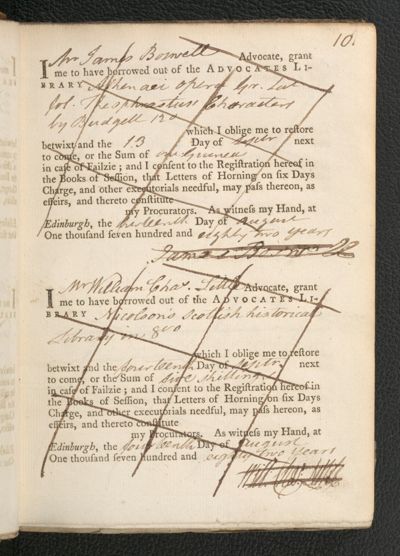 10.
I Mr James Boswell Advocate, grant
me to have borrowed out of the ADVOCATES LI-
BRARY Athenaei opera Gr. Lat
fol. Theophrastus Characters
by Budgell 12o
which I oblige me to restore
betwixt and the 13 Day of Septr next
to come, or the Sum of
in case of Failzie; and I consent to the Registration hereof in
the Books of Session, that Letters of Horning on six Days
Charge, and other executorials needful, may pass thereon, as
effeirs, and thereto constitute
my Procurators. As witness my Hand, at
Edinburgh, the thirteenth Day of August
One thousand seven hundred and eighty two years
James Boswell
I Mr William Chas. Little Advocate, grant
me to have borrowed out of the ADVOCATES LI-
BRARY Nicolson's Scottish historical
Library in 8vo
which I oblige me to restore
betwixt and the fourteenth Day of Septr next
to come, or the Sum of five shillings
in case of Failzie; and I consent to the Registration hereof in
the Books of Session, that Letters of Horning on six Days
Charge, and other executorials needful, may pass hereon, as
effeirs, and thereto constitute
my Procurators. As witness my Hand, at
Edinburgh, the fourteenth Day of August
One thousand seven hundred and eighty two years
Will: Chas: Little